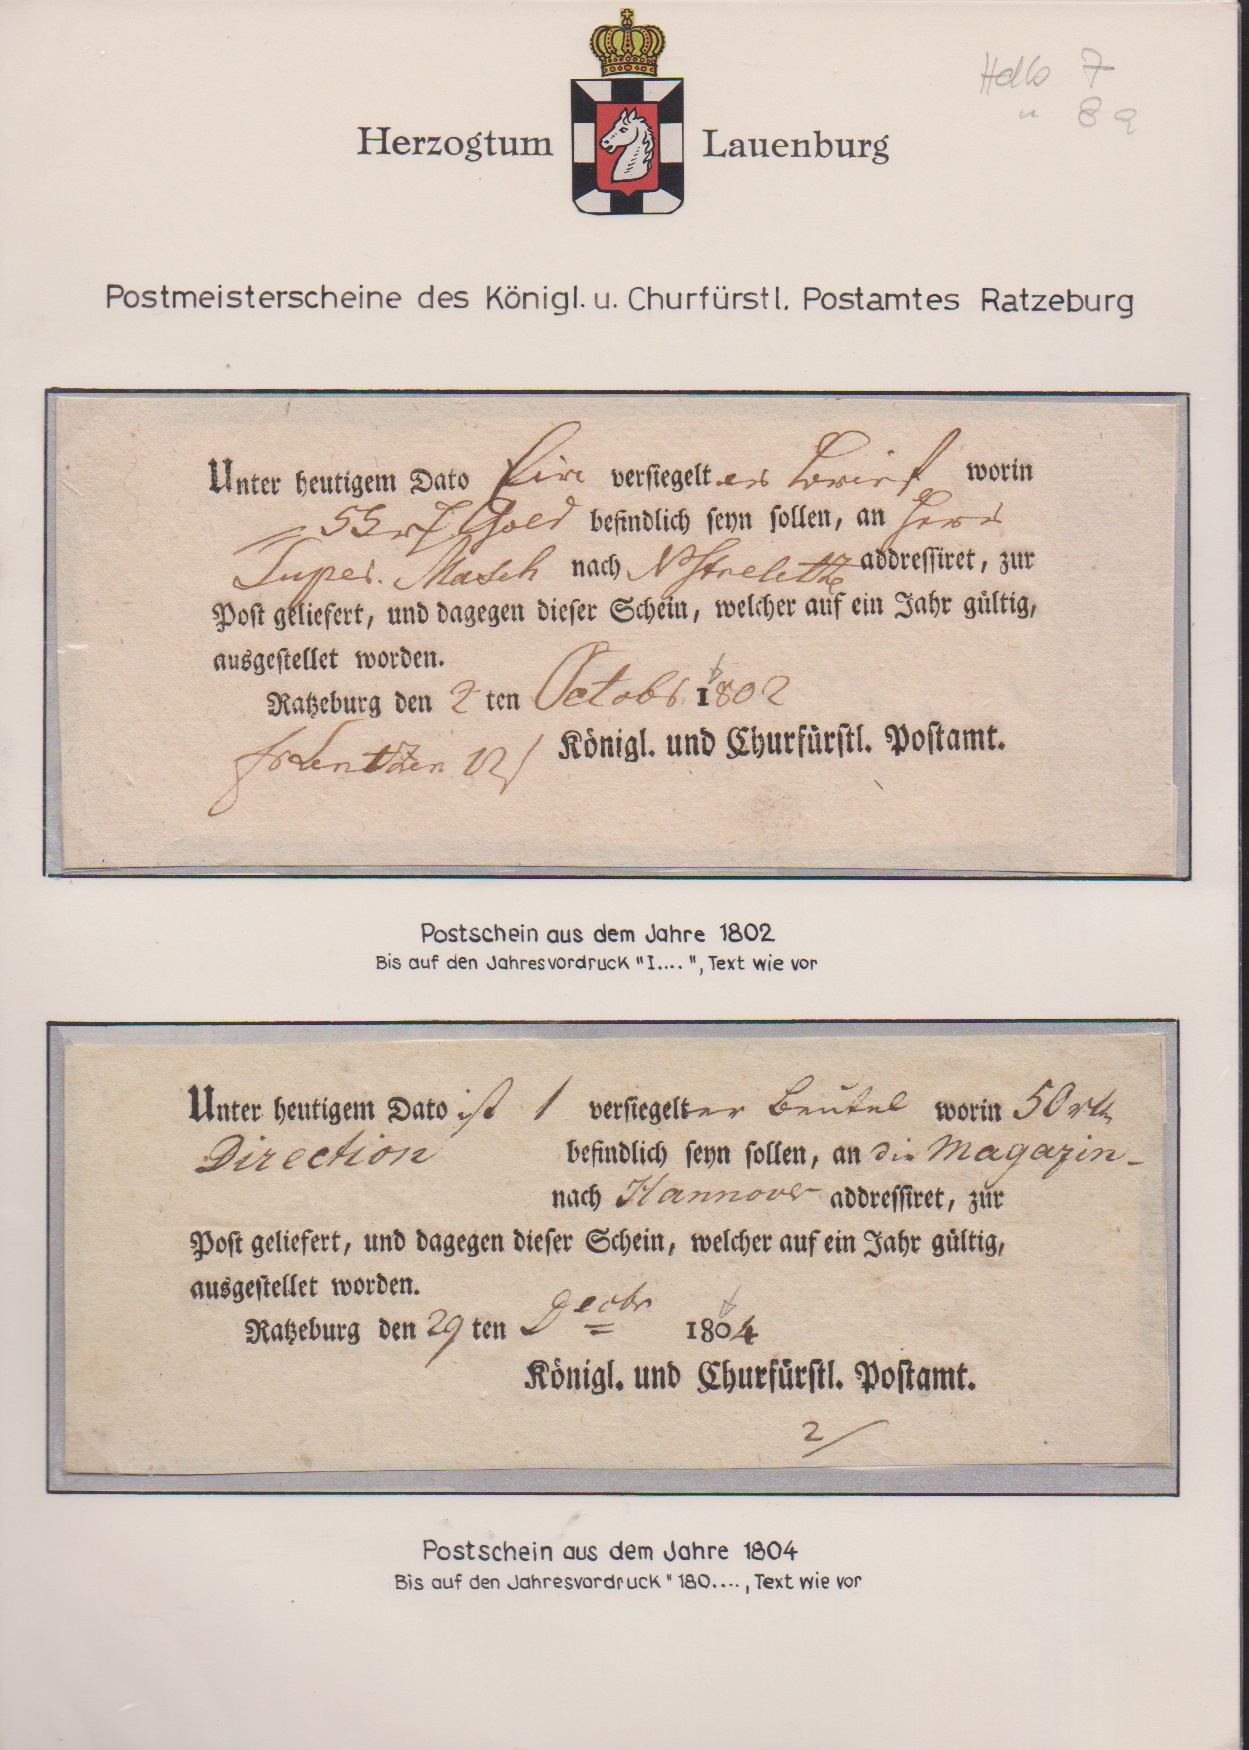 Hella 7
" 8 a
Herzogtum Lauenburg
Postmeisterscheine des Königl. u. Churfürstl. Postamtes Ratzeburg
Unter heutigem Dato Ein versiegelt er Brief worin
55 rt Gold befindlich seyn sollen, an Herr
Super. Masch nach NStrelitz addressiret, zur
Post geliefert, und dagegen dieser Schein, welcher auf ein Jahr gültig,
ausgestellet worden.
Ratzeburg den 2 ten Octobr 1802
Königl. und Churfürstl. Postamt.
Postschein aus dem Jahre 1802
Bis auf den Jahresvordruck "I....", Text wie vor
Unter heutigem Dato ist 1 versiegelter Beutel worin 50 rth
Direction befindlich seyn sollen, an die Magazin-
nach Hannover addressiret, zur
Post geliefert, und dagegen dieser Schein, welcher auf ein Jahr gültig,
ausgestellet worden.
Ratzeburg den 29 ten Decbr 1804
Königl. und Churfürstl. Postamt.
2/
Postschein aus dem Jahre 1804
Bis auf den Jahresvordruck "180...., Text wie vor